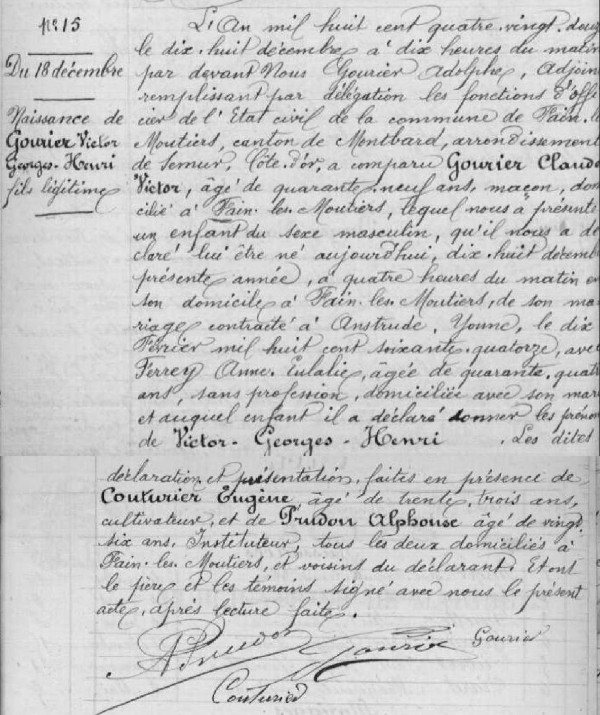 n° 15
Du 18 décembre
Naissance de
Gourier Victor
Georges-Henri
fils légitime
L'An mil huit cent quatre-vingt-douze
le dix-huit décembre à dix heures du matin
par devant Nous Gourier Adolphe, Adjoin
remplissant par délégation les fonctions d'offi
cier de l'Etat civil de la commune de Fain-le
Moutiers, canton de Montbard, arrondissement
de Semur, Côte-d'or, a comparu Gourier Claude
Victor, âgé de quarante-neuf ans, maçon, dom
cilié à Fain-les-Moutiers, lequel nous a présenté
un enfant du sexe masculin, qu'il nous a dé
claré lui être né aujourd'hui, dix-huit décemb
présente année, à quatre heures du matin en
son domicile à Fain-les-Moutiers, de son ma
riage contracté à Anstrude, Yonne, le dix
Février mil huit cent soixante-quatorze, avec
Ferrey Anne-Eulalie, âgée de quarante-quatre
ans, sans profession, domiciliée avec son mari
et auquel enfant il a déclaré donner les prénom
de Victor-Georges-Henri. Les dites
déclaration et présentation faites en présence de
Couturier Eugène âgé de trente-trois ans,
cultivateur, et de Prudon Alphonse âgé de vingt-
six ans, Instituteur, tous les deux domiciliés à
Fain-les-Moutiers, et voisins du déclarant. Et ont
le père et les témoins signé avec nous le présent
acte, après lecture faite.
A Prudon Gourier Gourier
Couturier